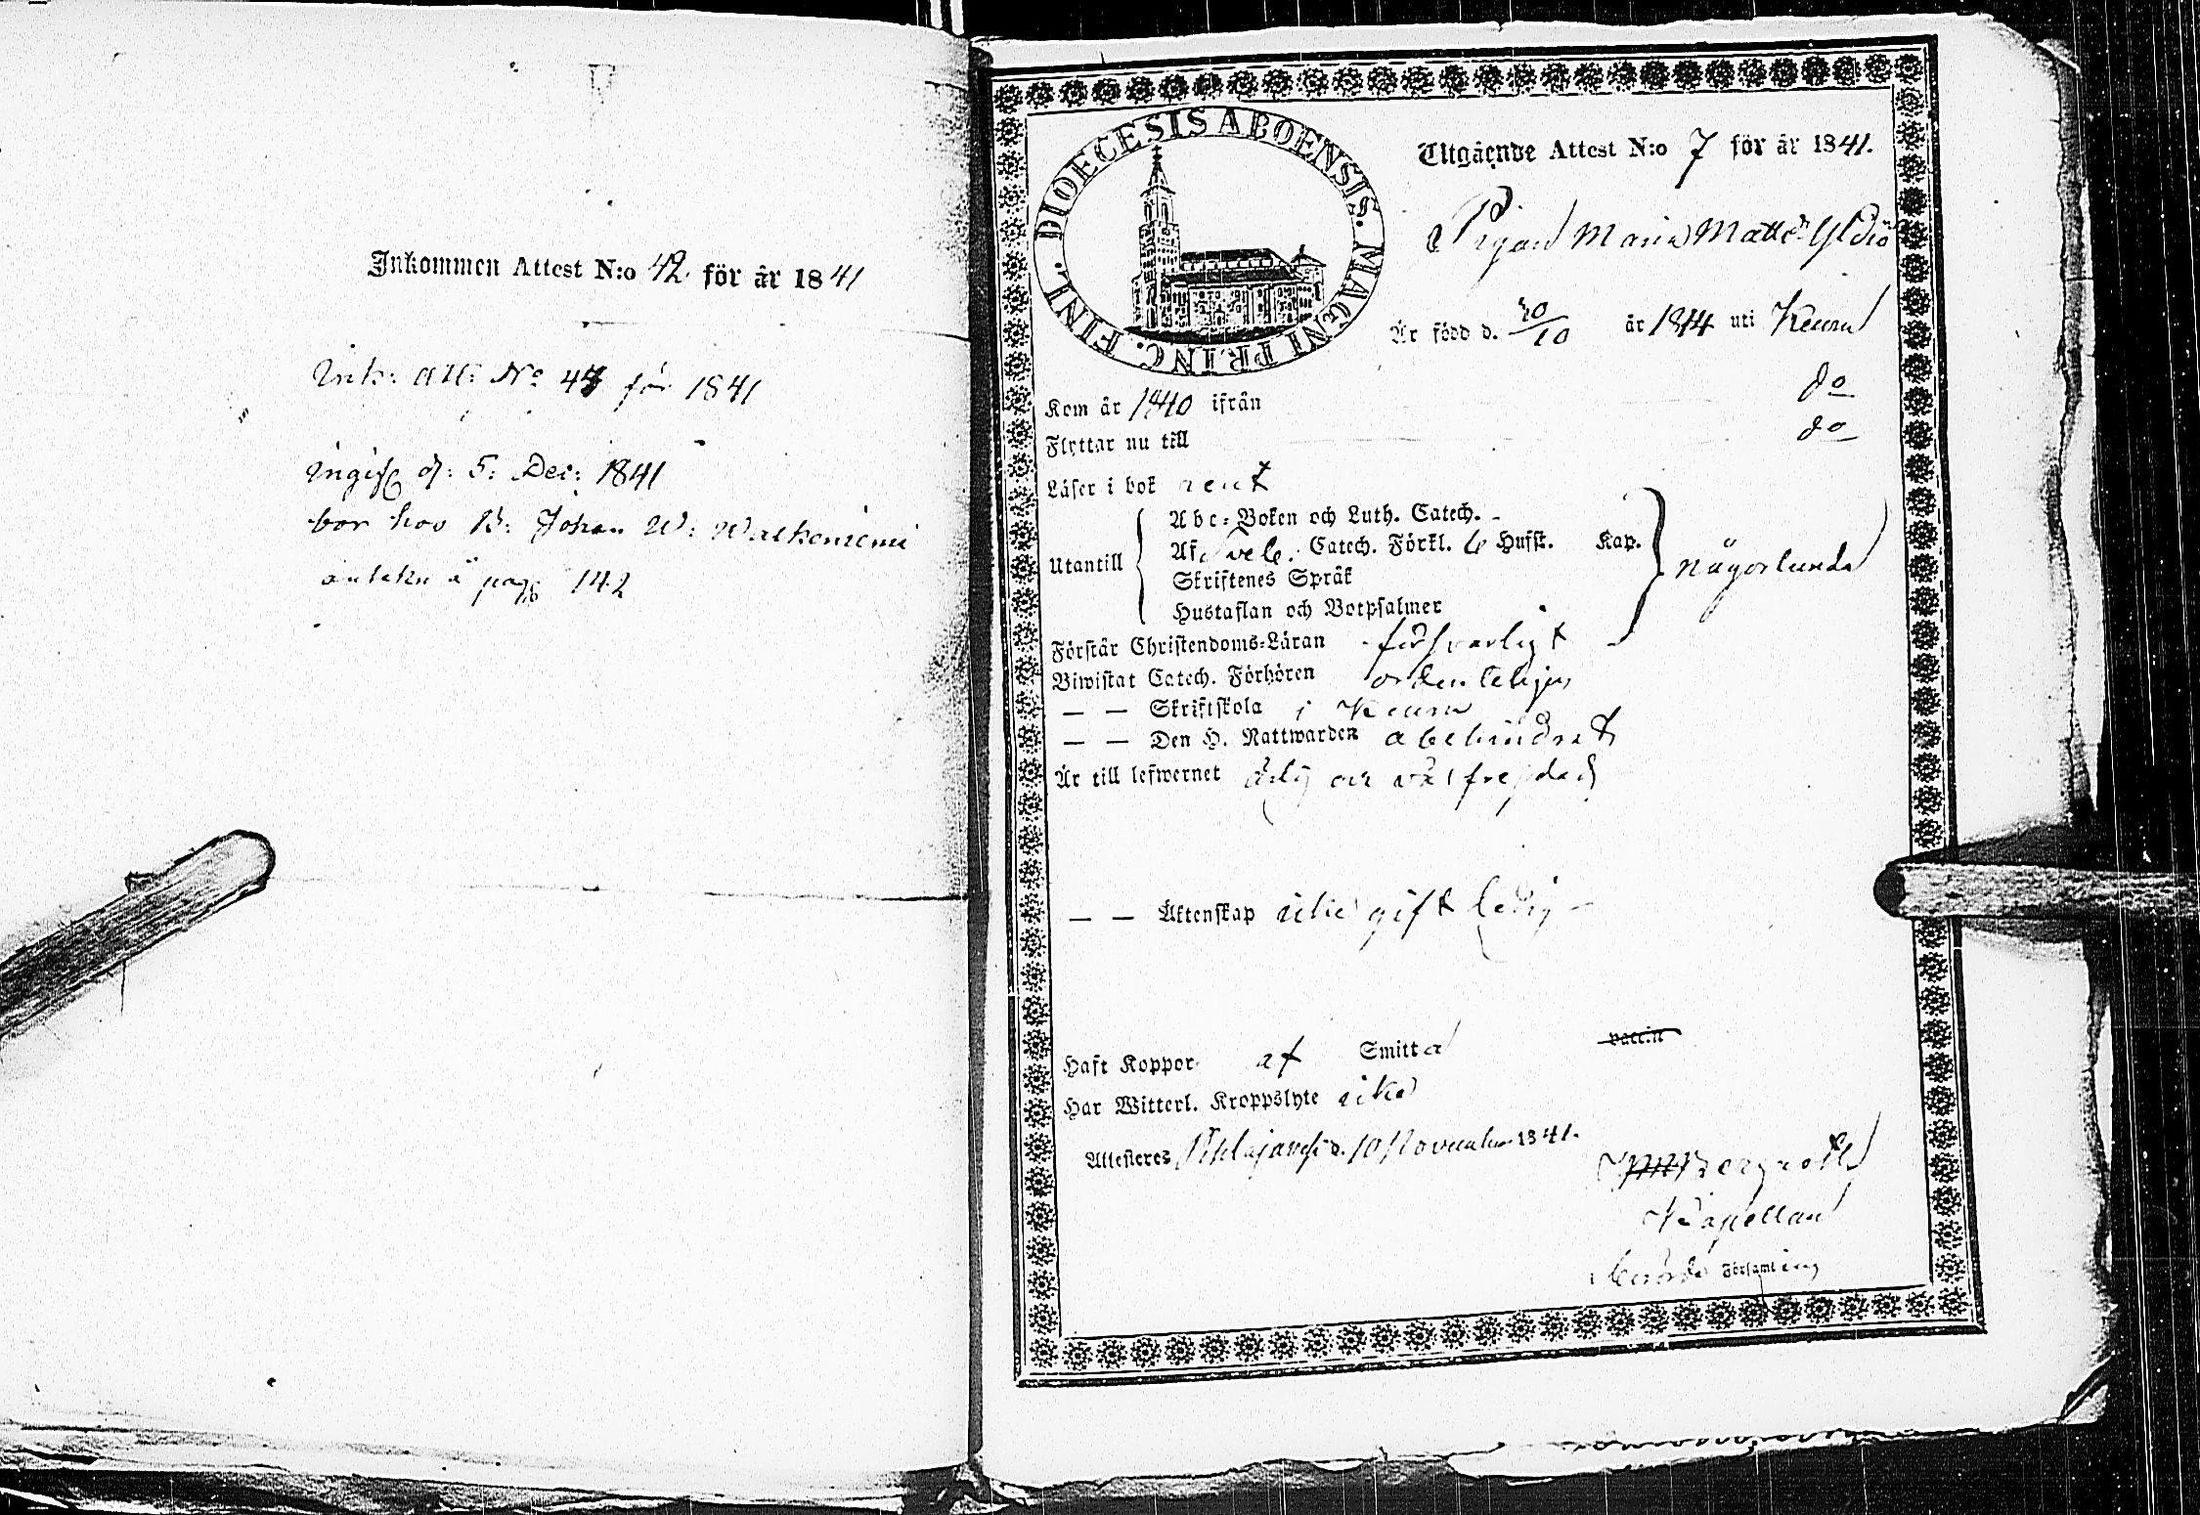 Inkommen Attest N:o 42 för år 1841
Ink: Att: No 44 för 1841
d: 5: Dec: 1841
bor hos B: Johan W: Walkeniemi
å pag 142
DIOECESIS ABOENSIS. MAGNI PRINC. FINL.
Utgående Attest N:o 7 för år 1841.
Pigan Maria Matts
Är född d. 20/10 år 1814 uti Keuru
Kom år 1840 ifrån do
Flyttar nu till do
Läser i bok rent
Utantill
Abc-Boken och Luth. Catech. -
Af Catech. Förkl. Husft. Kap.
Skriftenes Språk
Hustaflan och Botpsalmer
någorlunda
Förstår Christendoms-Läran försvarligt
Biwistat Catech. Förhören ordenteligen
— — Skriftskola i Keuru
— — Den H. Nattwarden obehindrat
Är till lefwernet ärlig och välfrejdad
— — Äktenskap icke gift ledig
Haft Koppor af Smitta vaccin
Har Witterl. Kroppslyte icke
Attesteres Pihlajavesi d. 10 November 1841.
Bergroth
Kapellan
Församling